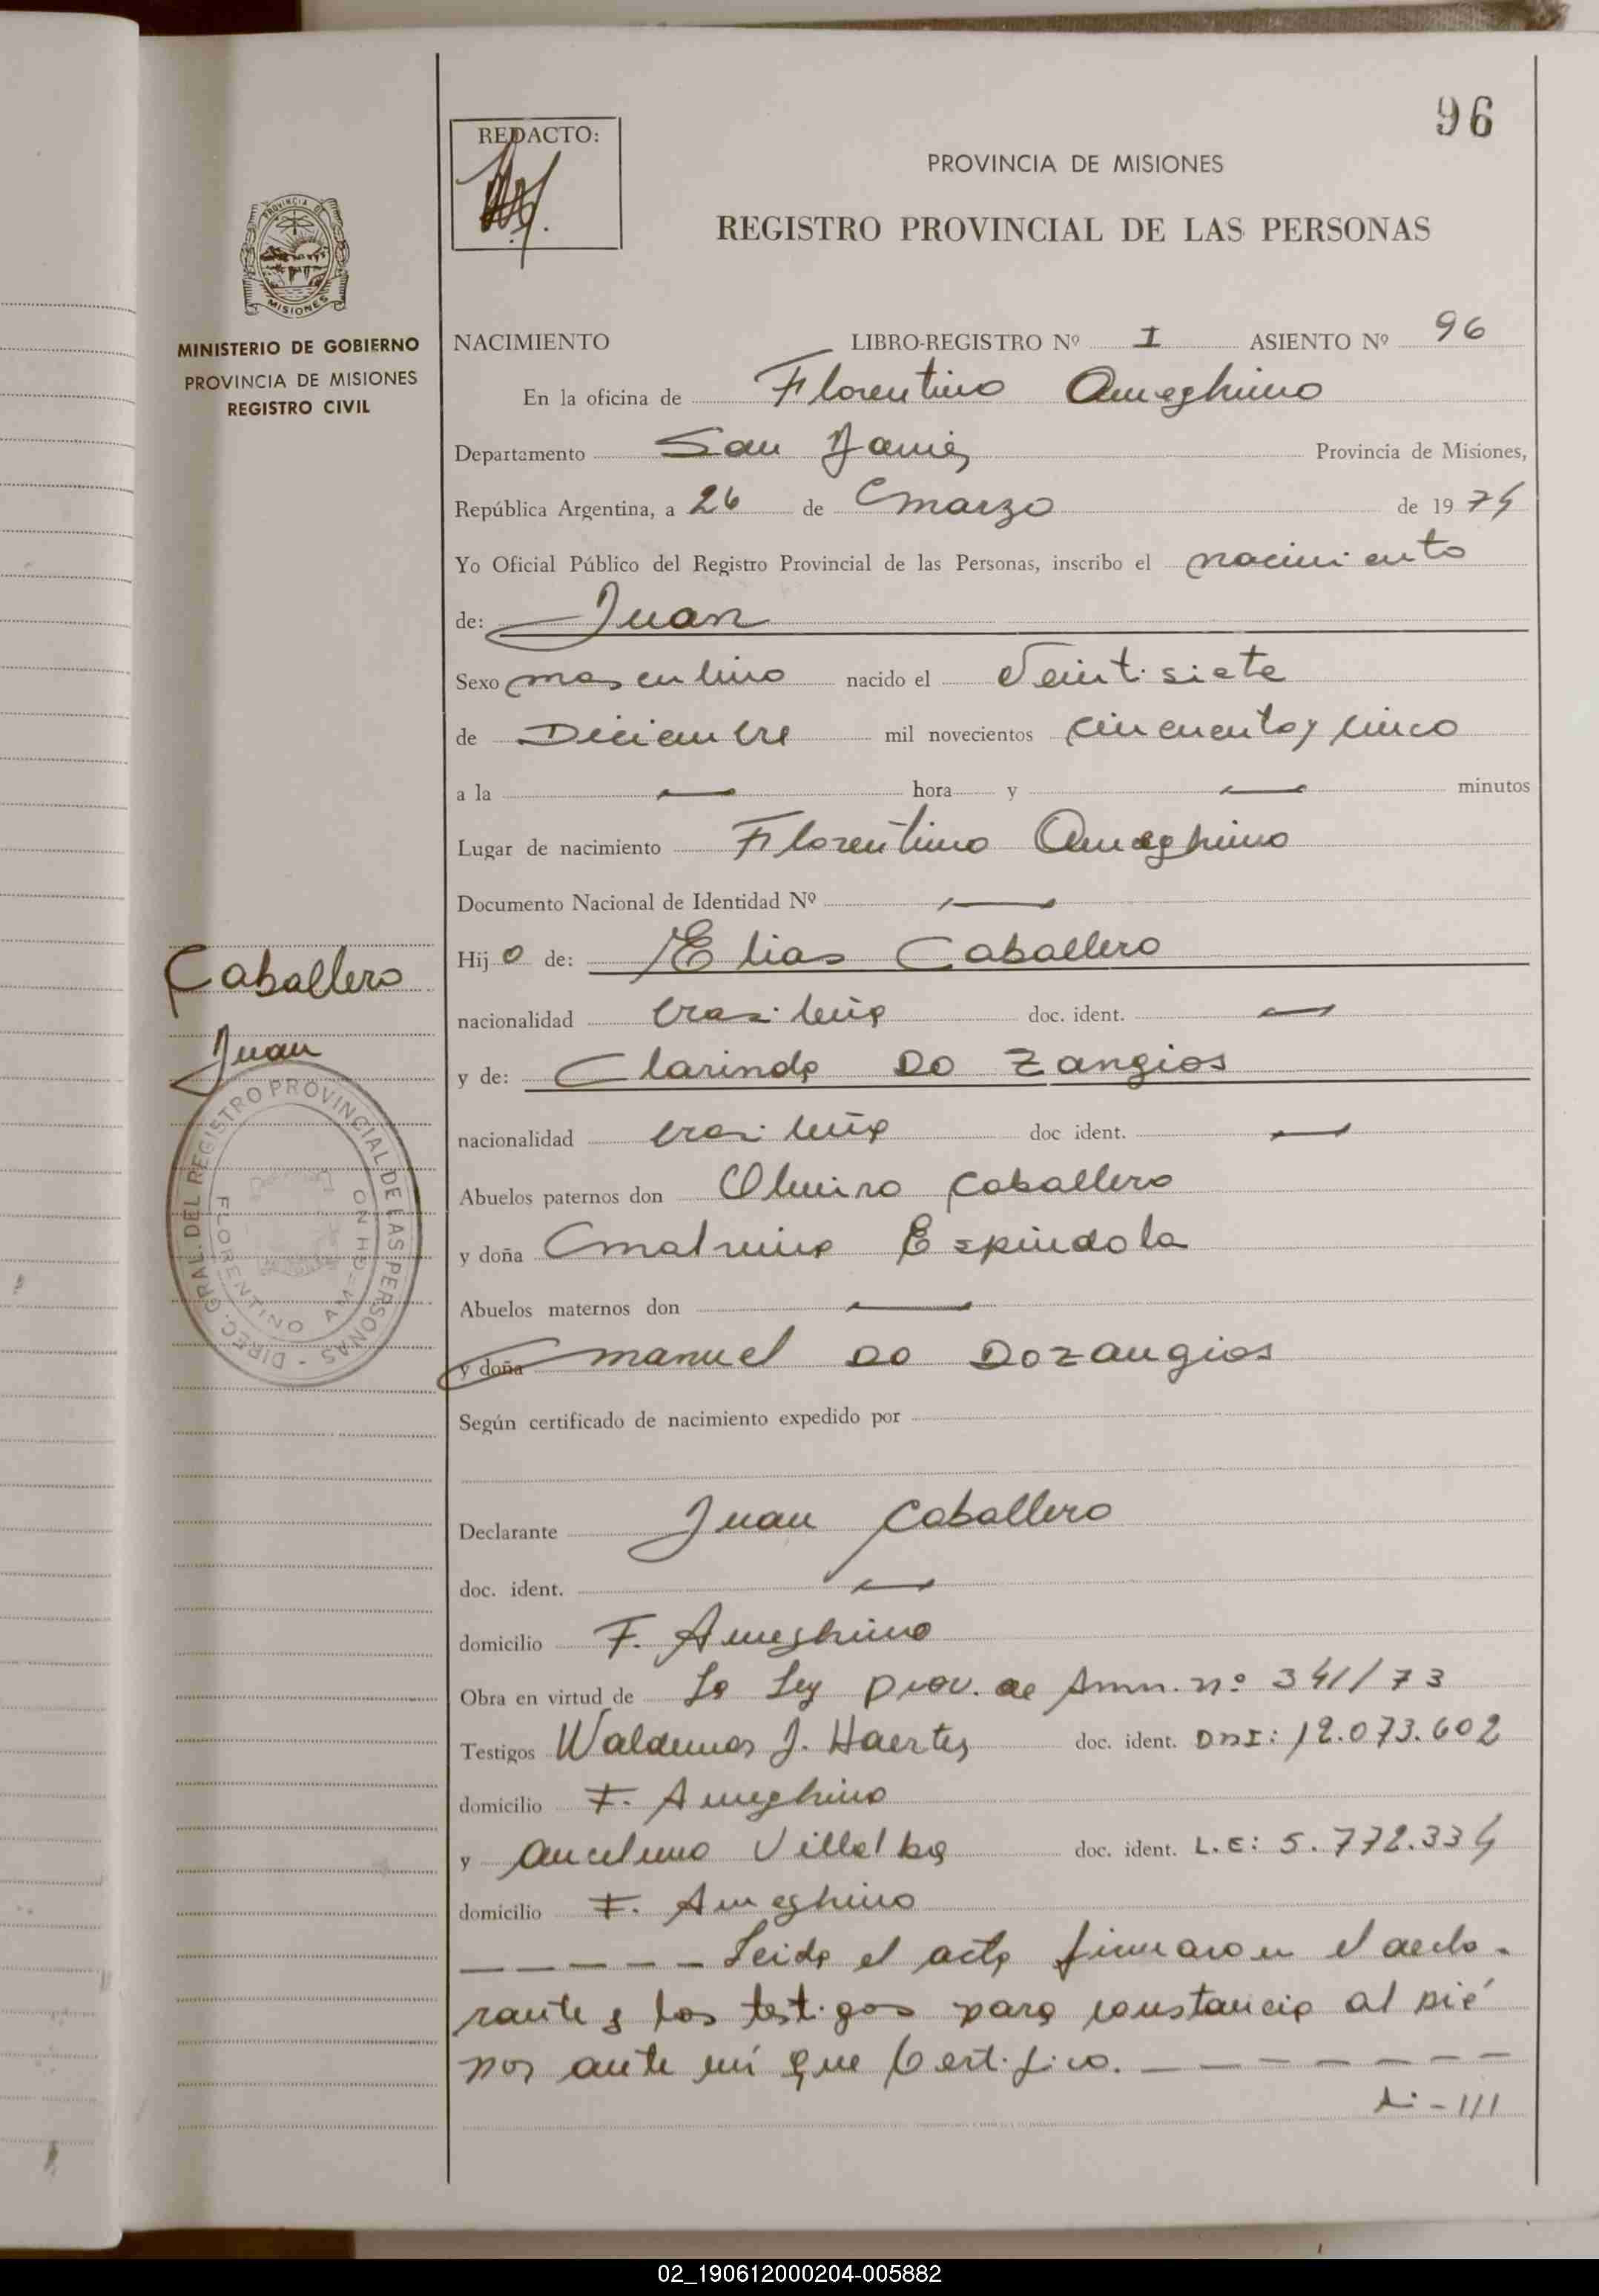 96
REDACTO:
PROVINCIA DE MISIONES
REGISTRO PROVINCIAL DE LAS PERSONAS
PROVINCIA DE
MISIONES
MINISTERIO DE GOBIERNO
PROVINCIA DE MISIONES
REGISTRO CIVIL
NACIMIENTO LIBRO-REGISTRO Nº I ASIENTO Nº 96
En la oficina de Florentino Ameghino
Departamento San Javier Provincia de Misiones,
República Argentina, a 26 de marzo de 1974
Yo Oficial Público del Registro Provincial de las Personas, inscribo el nacimiento
de: Juan
Sexo masculino nacido el Veintisiete
de Diciembre mil novecientos cincuenta y cinco
a la — hora y — minutos
Lugar de nacimiento Florentino Ameghino
Documento Nacional de Identidad Nº —
Hijo de: Elias Caballero
nacionalidad brasileña doc. ident. —
y de: Clarinda Do Zangios
nacionalidad brasileña doc ident. —
Abuelos paternos don Olmiro Caballero
y doña Malvina Espindola
Abuelos maternos don —
y doña manuel Do Dozangios
Según certificado de nacimiento expedido por
Declarante Juan Caballero
doc. ident. —
domicilio F. Ameghino
Obra en virtud de La Ley prov. de Amn. nº 341/73
Testigos Waldemar J. Haerter doc. ident. DNI: 12.073.602
domicilio F. Ameghino
y Ancelmo Villalba doc. ident. L.E: 5.772.334
domicilio F. Ameghino
— — — — — Leida el acta firmaron el decla-
rante y los testigos para constancia al pié
por ante mí que Certifico. — — — — — — —
- ///
Caballero
Juan
DIREC. GRAL. DEL REGISTRO PROVINCIAL DE LAS PERSONAS -
FLORENTINO AMEGHINO
02_190612000204-005882